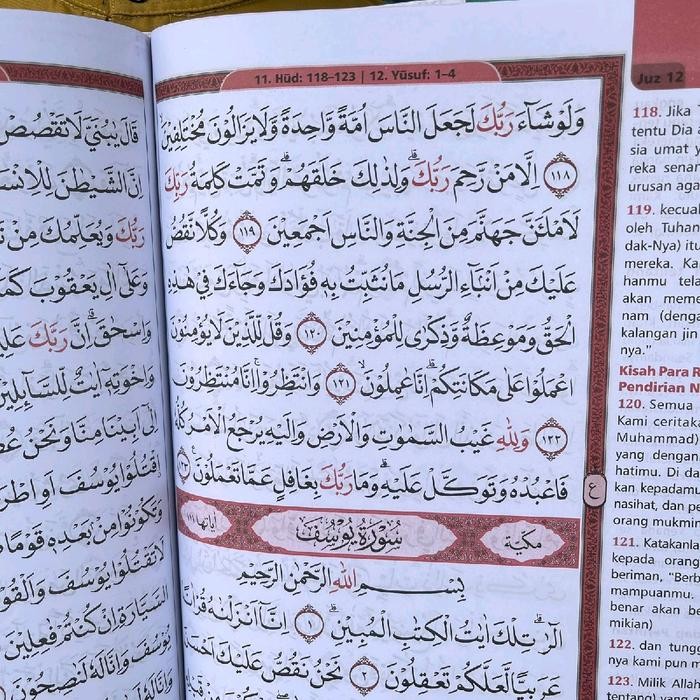 11. Hūd: 118–123 | 12. Yūsuf: 1–4
Juz 12
وَلَوْ شَاۤءَ رَبُّكَ لَجَعَلَ النَّاسَ اُمَّةً وَّاحِدَةً وَّلَا يَزَالُوْنَ مُخْتَلِفِيْنَۙ
١١٨ اِلَّا مَنْ رَّحِمَ رَبُّكَ ۗوَلِذٰلِكَ خَلَقَهُمْ ۗوَتَمَّتْ كَلِمَةُ رَبِّكَ
لَاَمْلَـَٔنَّ جَهَنَّمَ مِنَ الْجِنَّةِ وَالنَّاسِ اَجْمَعِيْنَ ١١٩ وَكُلًّا نَّقُصُّ
عَلَيْكَ مِنْ اَنْۢبَاۤءِ الرُّسُلِ مَا نُثَبِّتُ بِهٖ فُؤَادَكَ وَجَاۤءَكَ فِيْ هٰذِهِ
الْحَقُّ وَمَوْعِظَةٌ وَّذِكْرٰى لِلْمُؤْمِنِيْنَ ١٢٠ وَقُلْ لِّلَّذِيْنَ لَا يُؤْمِنُوْنَ
اعْمَلُوْا عَلٰى مَكَانَتِكُمْۗ اِنَّا عٰمِلُوْنَۙ ١٢١ وَانْتَظِرُوْاۚ اِنَّا مُنْتَظِرُوْنَ
١٢٢ وَلِلّٰهِ غَيْبُ السَّمٰوٰتِ وَالْاَرْضِ وَاِلَيْهِ يُرْجَعُ الْاَمْرُ كُلُّهٗ
فَاعْبُدْهُ وَتَوَكَّلْ عَلَيْهِۗ وَمَا رَبُّكَ بِغَافِلٍ عَمَّا تَعْمَلُوْنَ ١٢٣
ع
مكية سُوْرَةُ يُوْسُفَ اٰياتها ١١١
بِسْمِ اللّٰهِ الرَّحْمٰنِ الرَّحِيْمِ
الۤرٰ ۗ تِلْكَ اٰيٰتُ الْكِتٰبِ الْمُبِيْنِۗ ١ اِنَّآ اَنْزَلْنٰهُ قُرْاٰنًا
عَرَبِيًّا لَّعَلَّكُمْ تَعْقِلُوْنَ ٢ نَحْنُ نَقُصُّ عَلَيْكَ اَحْسَنَ
118. Jika
tentu Dia
sia umat
reka senan
urusan aga
119. kecua
oleh Tuhan
dak-Nya) itu
mereka. Ka
hanmu tela
akan mem
nam (denga
kalangan jin
nya.”
Kisah Para R
Pendirian N
120. Semua
Kami ceritaka
Muhammad)
yang dengan
hatimu. Di da
kan kepadamu
nasihat, dan pe
orang mukmin
121. Katakanla
kepada orang
beriman, “Berb
mampuanmu.
benar akan be
mikian)
122. dan tungg
nya kami pun m
123. Milik Allah
قَالَ يٰبُنَيَّ لَا تَقْصُصْ
اِنَّ الشَّيْطٰنَ لِلْاِنْسَ
رَبُّكَ وَيُعَلِّمُكَ مِنْ تَ
وَعَلٰٓى اٰلِ يَعْقُوْبَ كَمَ
وَاِسْحٰقَۗ اِنَّ رَبَّكَ عَلِيْ
وَاِخْوَتِهٖٓ اٰيٰتٌ لِّلسَّاۤىِٕلِيْنَ
اِلٰٓى اَبِيْنَا مِنَّا وَنَحْنُ عُصْ
اقْتُلُوْا يُوْسُفَ اَوِ اطْرَ
وَتَكُوْنُوْا مِنْۢ بَعْدِهٖ قَوْمًا
لَا تَقْتُلُوْا يُوْسُفَ وَاَلْقُوْ
السَّيَّارَةِ اِنْ كُنْتُمْ فٰعِلِيْنَ
يُوْسُفَ وَاِنَّا لَهٗ لَنٰصِحُوْنَ